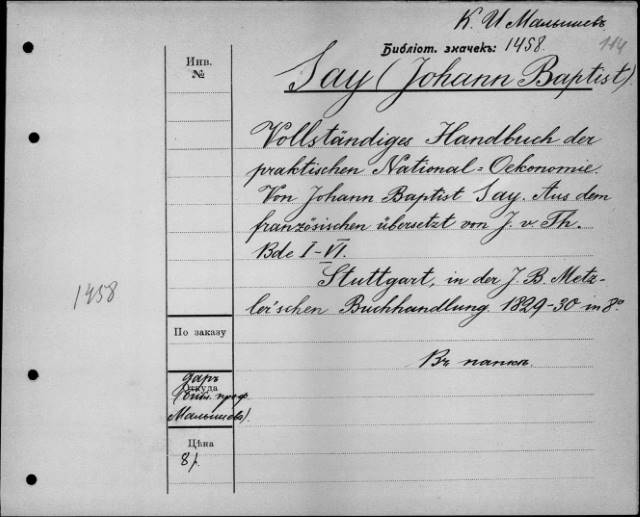 К. И Малышевъ
Библіот. значекъ: 1458.
114
Инв.
№
Say (Johann Baptist).
Vollständiges Handbuch der
praktischen National=Oekonomie.
Von Johann Baptist Say. Aus dem
französischen übersetzt von J. v. Th.
Bde I-VI.
Stuttgart, in der J. B. Metz-
ler'schen Buchhandlung 1829-30 in 8º
1458
По заказу
Въ папкѣ.
Откуда
даръ
(библ. проф.
Малышева).
Цѣна
8 р.